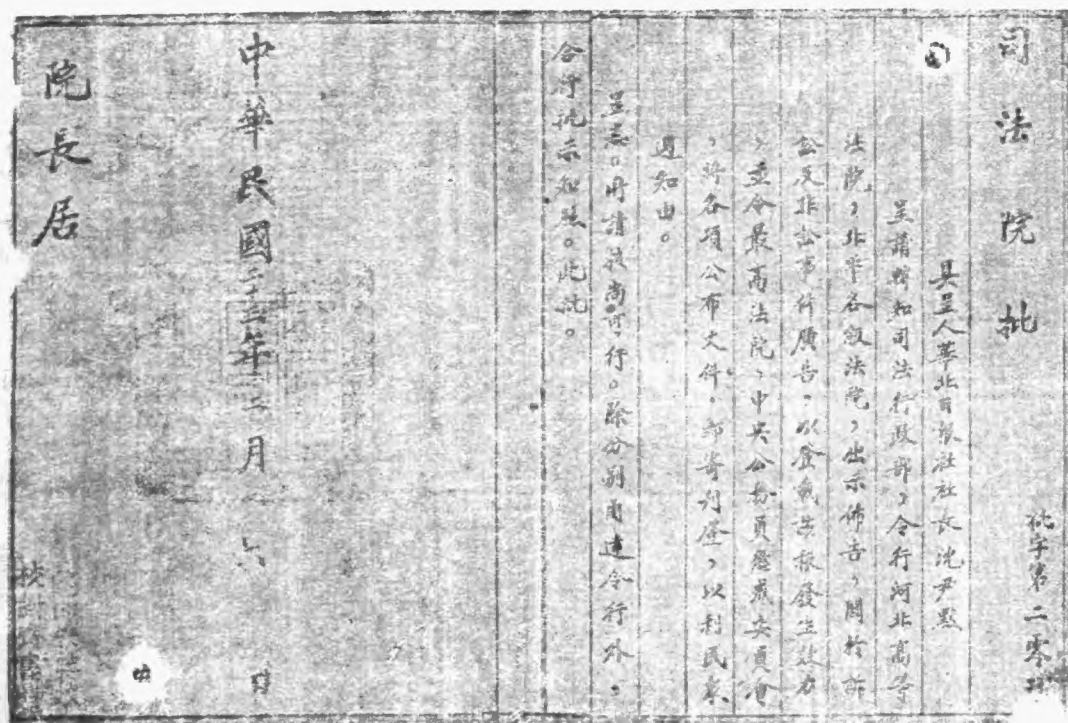 司法院批
批字第二零
具呈人華北日報社社長沈尹默
呈請轉知司法行政部，令行河北高等
法院，北平各級法院，出示佈告，關於訴
訟及非訟事件廣告，以登載該報發生效力
，並令最高法院，中央公務員懲戒委員會
，將各項公布文件，郵寄刊登，以利民衆
週知由。
呈悉。所請核尚可行。除分別函達令行外，
合行批示知照。此批。
中華民國二十三年 二月 六
院長居
校對